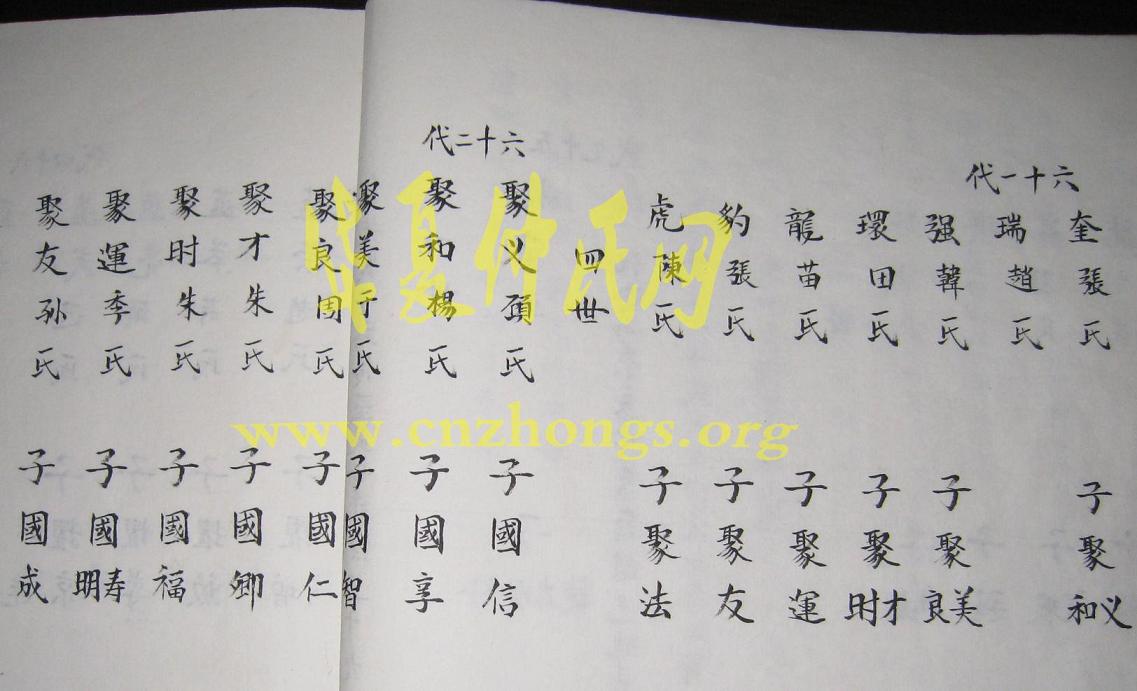 六十一代
奎張氏 子聚义和
瑞趙氏
强韓氏 子聚美良
環田氏 子聚才时
龍苗氏 子聚運
豹張氏 子聚友
虎陳氏 子聚法
四世
六十二代
聚义頊氏 子國信
聚和楊氏 子國享
聚美于氏 子國智
聚良周氏 子國仁
聚才朱氏 子國卿
聚时朱氏 子國福
聚運季氏 子國寿明
聚友孙氏 子國成
华夏仲氏网
www.cnzhongs.org